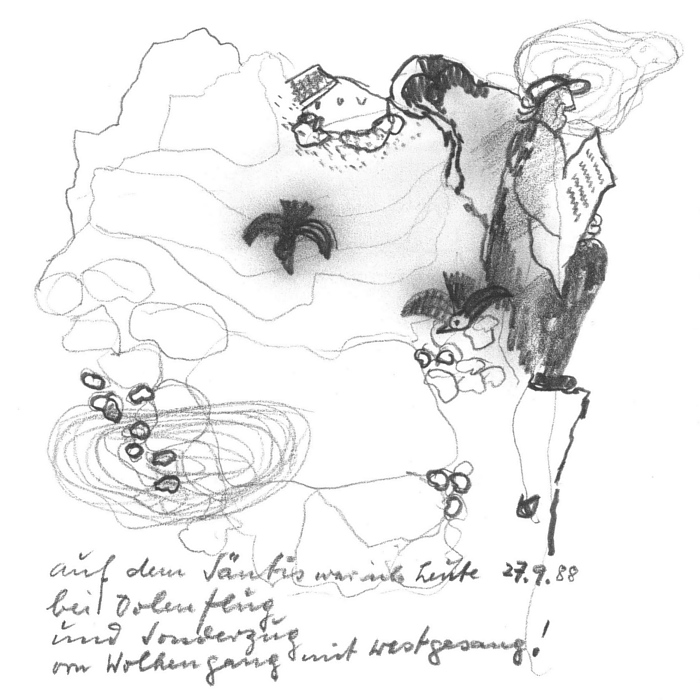 auf dem Säntis war ich heute 27.9.88
bei Dolenflug
und Sonderzug
vom Wolkengang mit Westgesang!